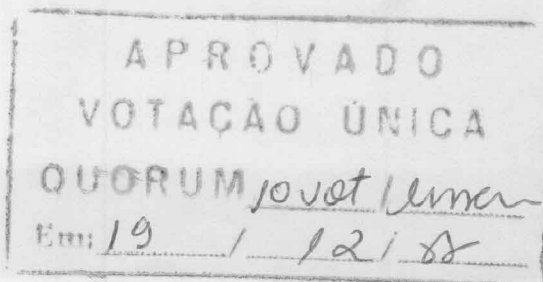 APROVADO
VOTAÇÃO ÚNICA
QUORUM 10 vot
Em: 19 / 12 /